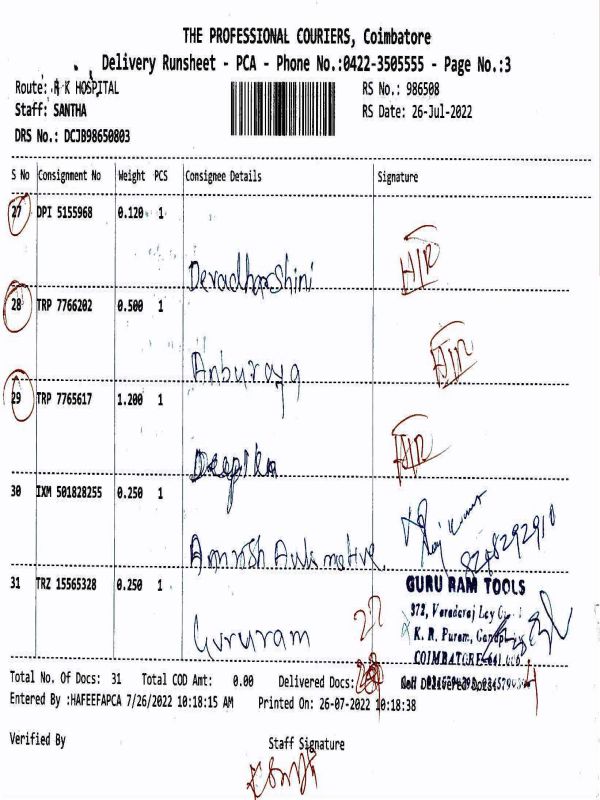 THE PROFESSIONAL COURIERS, Coimbatore
Delivery Runsheet - PCA - Phone No.:0422-3505555 - Page No.:3
Route: R K HOSPITAL
RS No.: 986508
Staff: SANTHA
RS Date: 26-Jul-2022
DRS No.: DCJB98650803
S No Consignment No Weight PCS Consignee Details Signature
27 DPI 5155968 0.120 1
Devadharshini
28 TRP 7766202 0.500 1
Anburaya
29 TRP 7765617 1.200 1
Deepika
30 IXM 501828255 0.250 1
Raj Kumar
8248292910
Amrish Automotive
31 TRZ 15565328 0.250 1
GURU RAM TOOLS
372, Varadaraj Lay
Gururam
27
K. R. Puram,
COIMBATORE-641 006
Total No. Of Docs: 31 Total COD Amt: 0.00 Delivered Docs: Non Delivered Docs: 4
Entered By :HAFEEFAPCA 7/26/2022 10:18:15 AM Printed On: 26-07-2022 10:18:38
Verified By Staff Signature